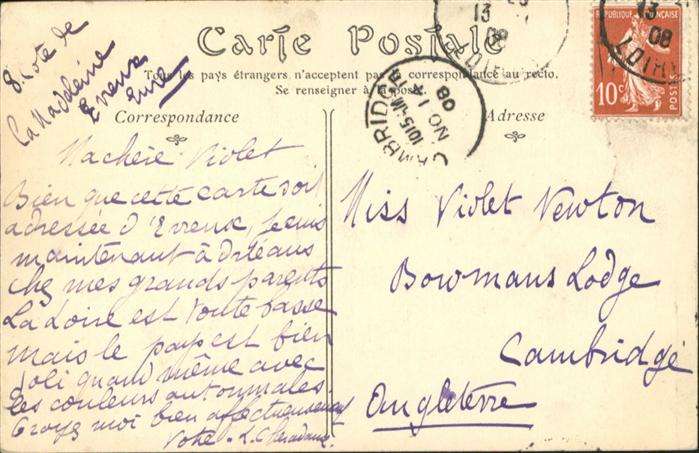 8. Côte de
La Madeleine
Evreux
Eure
Carte Postale
Tous les pays étrangers n'acceptent pas la correspondance au recto.
Se renseigner à la poste
Correspondance
Adresse
13
08
LOIRET
13
08
LOIRET
CAMBRIDGE
10 15 AM
NO 14
08
RÉPUBLIQUE FRANÇAISE
10c
POSTES
Ma chère Violet
Bien que cette carte soit
adressée d'Evreux, je suis
maintenant à Orléans
chez mes grands parents
La Loire est toute basse
mais le pays est bien
joli quand même avec
les couleurs automnales.
Croyez moi bien affectueusement
Votre
Miss Violet Newton
Bowmans Lodge
Cambridge
Angleterre